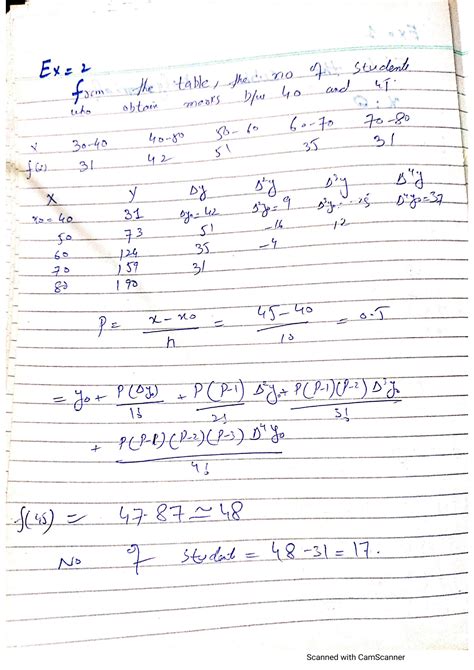 Ex = 2
form the table, the no of students
who obtain b/w 40 and 45.
x 30-40 40-50 50-60 60-70 70-80
f(x) 31 42 51 35 31
X Y Δy Δ²y Δ³y Δ⁴y
x0 = 40 31 Δy0 = 42 Δ²y0 = 9 Δ³y0 = -25 Δ⁴y0 = 37
50 73 51 -16 12
60 124 35 -4
70 159 31
80 190
P = x - x0 / h = 45 - 40 / 10 = 0.5
= y0 + P(Δy0) / 1! + P(P-1) Δ²y0 / 2! + P(P-1)(P-2) Δ³y0 / 3!
+ P(P-1)(P-2)(P-3) Δ⁴y0 / 4!
f(45) = 47.87 ≃ 48
No of Student = 48 - 31 = 17.
Scanned with CamScanner